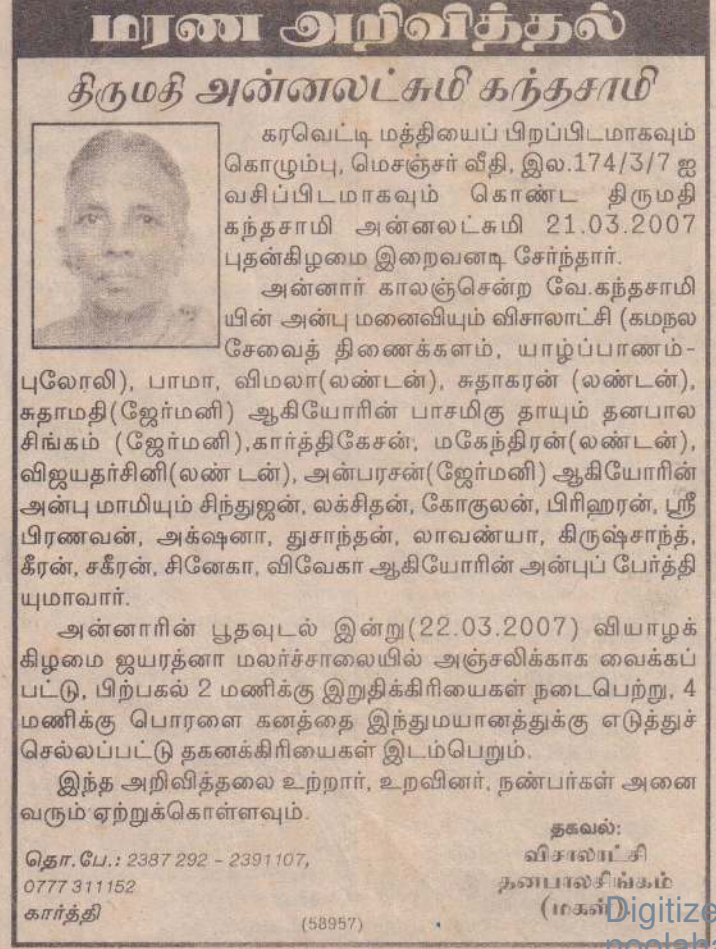 மரண அறிவித்தல்
திருமதி அன்னலட்சுமி கந்தசாமி
கரவெட்டி மத்தியைப் பிறப்பிடமாகவும்
கொழும்பு, மெசஞ்சர் வீதி, இல.174/3/7 ஐ
வசிப்பிடமாகவும் கொண்ட திருமதி
கந்தசாமி அன்னலட்சுமி 21.03.2007
புதன்கிழமை இறைவனடி சேர்ந்தார்.
அன்னார் காலஞ்சென்ற வே.கந்தசாமி
யின் அன்பு மனைவியும் விசாலாட்சி (கமநல
சேவைத் திணைக்களம், யாழ்ப்பாணம்-
புலோலி), பாமா, விமலா(லண்டன்), சுதாகரன் (லண்டன்),
சுதாமதி(ஜேர்மனி) ஆகியோரின் பாசமிகு தாயும் தனபால
சிங்கம் (ஜேர்மனி),கார்த்திகேசன், மகேந்திரன்(லண்டன்),
விஜயதர்சினி(லண் டன்), அன்பரசன்(ஜேர்மனி) ஆகியோரின்
அன்பு மாமியும் சிந்துஜன், லக்சிதன், கோகுலன், பிரிஹரன், ஸ்ரீ
பிரணவன், அக்ஷனா, துசாந்தன், லாவண்யா, கிருஷ்சாந்த்,
கீரன், சகீரன், சினேகா, விவேகா ஆகியோரின் அன்புப் பேர்த்தி
யுமாவார்.
அன்னாரின் பூதவுடல் இன்று(22.03.2007) வியாழக்
கிழமை ஜயரத்னா மலர்ச்சாலையில் அஞ்சலிக்காக வைக்கப்
பட்டு, பிற்பகல் 2 மணிக்கு இறுதிக்கிரியைகள் நடைபெற்று, 4
மணிக்கு பொரளை கனத்தை இந்துமயானத்துக்கு எடுத்துச்
செல்லப்பட்டு தகனக்கிரியைகள் இடம்பெறும்.
இந்த அறிவித்தலை உற்றார், உறவினர், நண்பர்கள் அனை
வரும் ஏற்றுக்கொள்ளவும்.
தகவல்:
விசாலாட்சி
தனபாலசிங்கம்
(மகள்)
தொ.பே.: 2387 292 - 2391107,
0777 311152
கார்த்தி
(58957)
Digitize
noolah